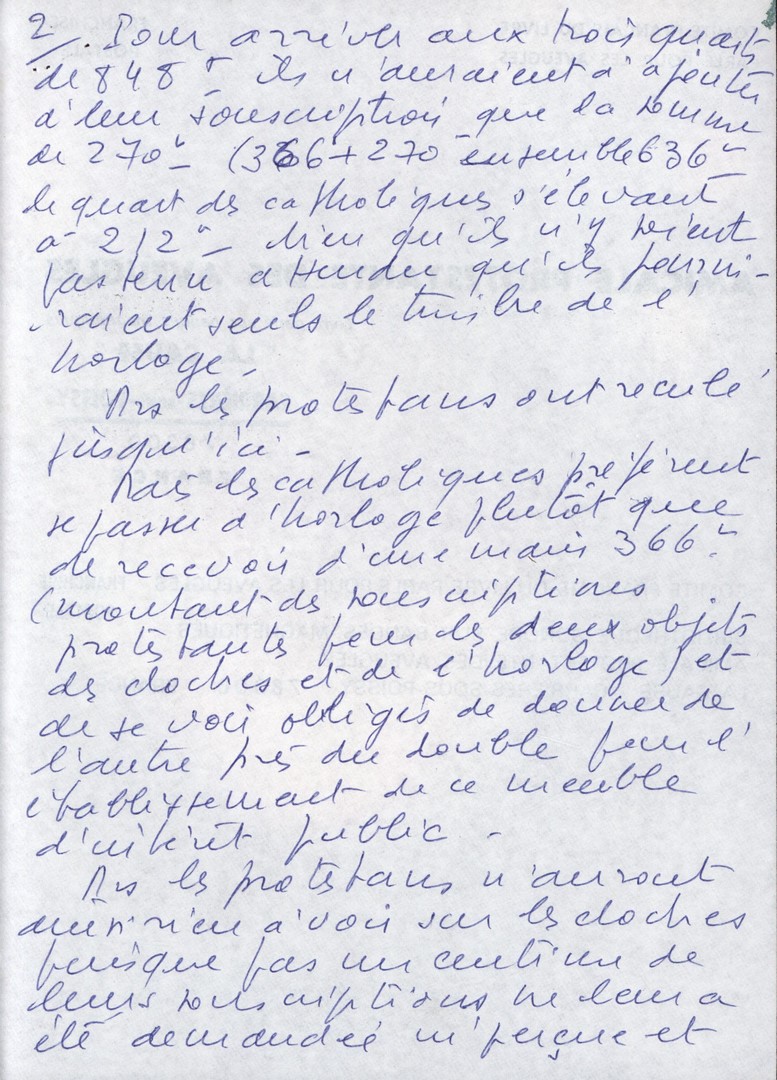 2/. Pour arriver aux trois quarts
de 848 " ils n'auraient à ajouter
à leur souscription que la somme
de 270"_ (366 + 270 ensemble 636"
le quart des catholiques s'élevant
à 212"_ bien qu'ils n'y soient
pas tenu attendu qu'ils fourni-
raient seuls le timbre de l'
horloge.
Mrs les protestans ont reculé
jusqu'ici -
Mais les catholiques préfèrent
se passer d'horloge plutôt que
de recevoir d'une main 366"
(montant des souscriptions
protestantes pour les deux objets
des cloches et de l'horloge) et
de se voir obligés de donner de
l'autre près du double pour l'
établissement de ce meuble
d'intérêt public -
Mrs les protestans n'auront
aussi rien à voir sur les cloches
puisque pas un centime de
leurs souscriptions ne leur a
été demandée ni perçue et